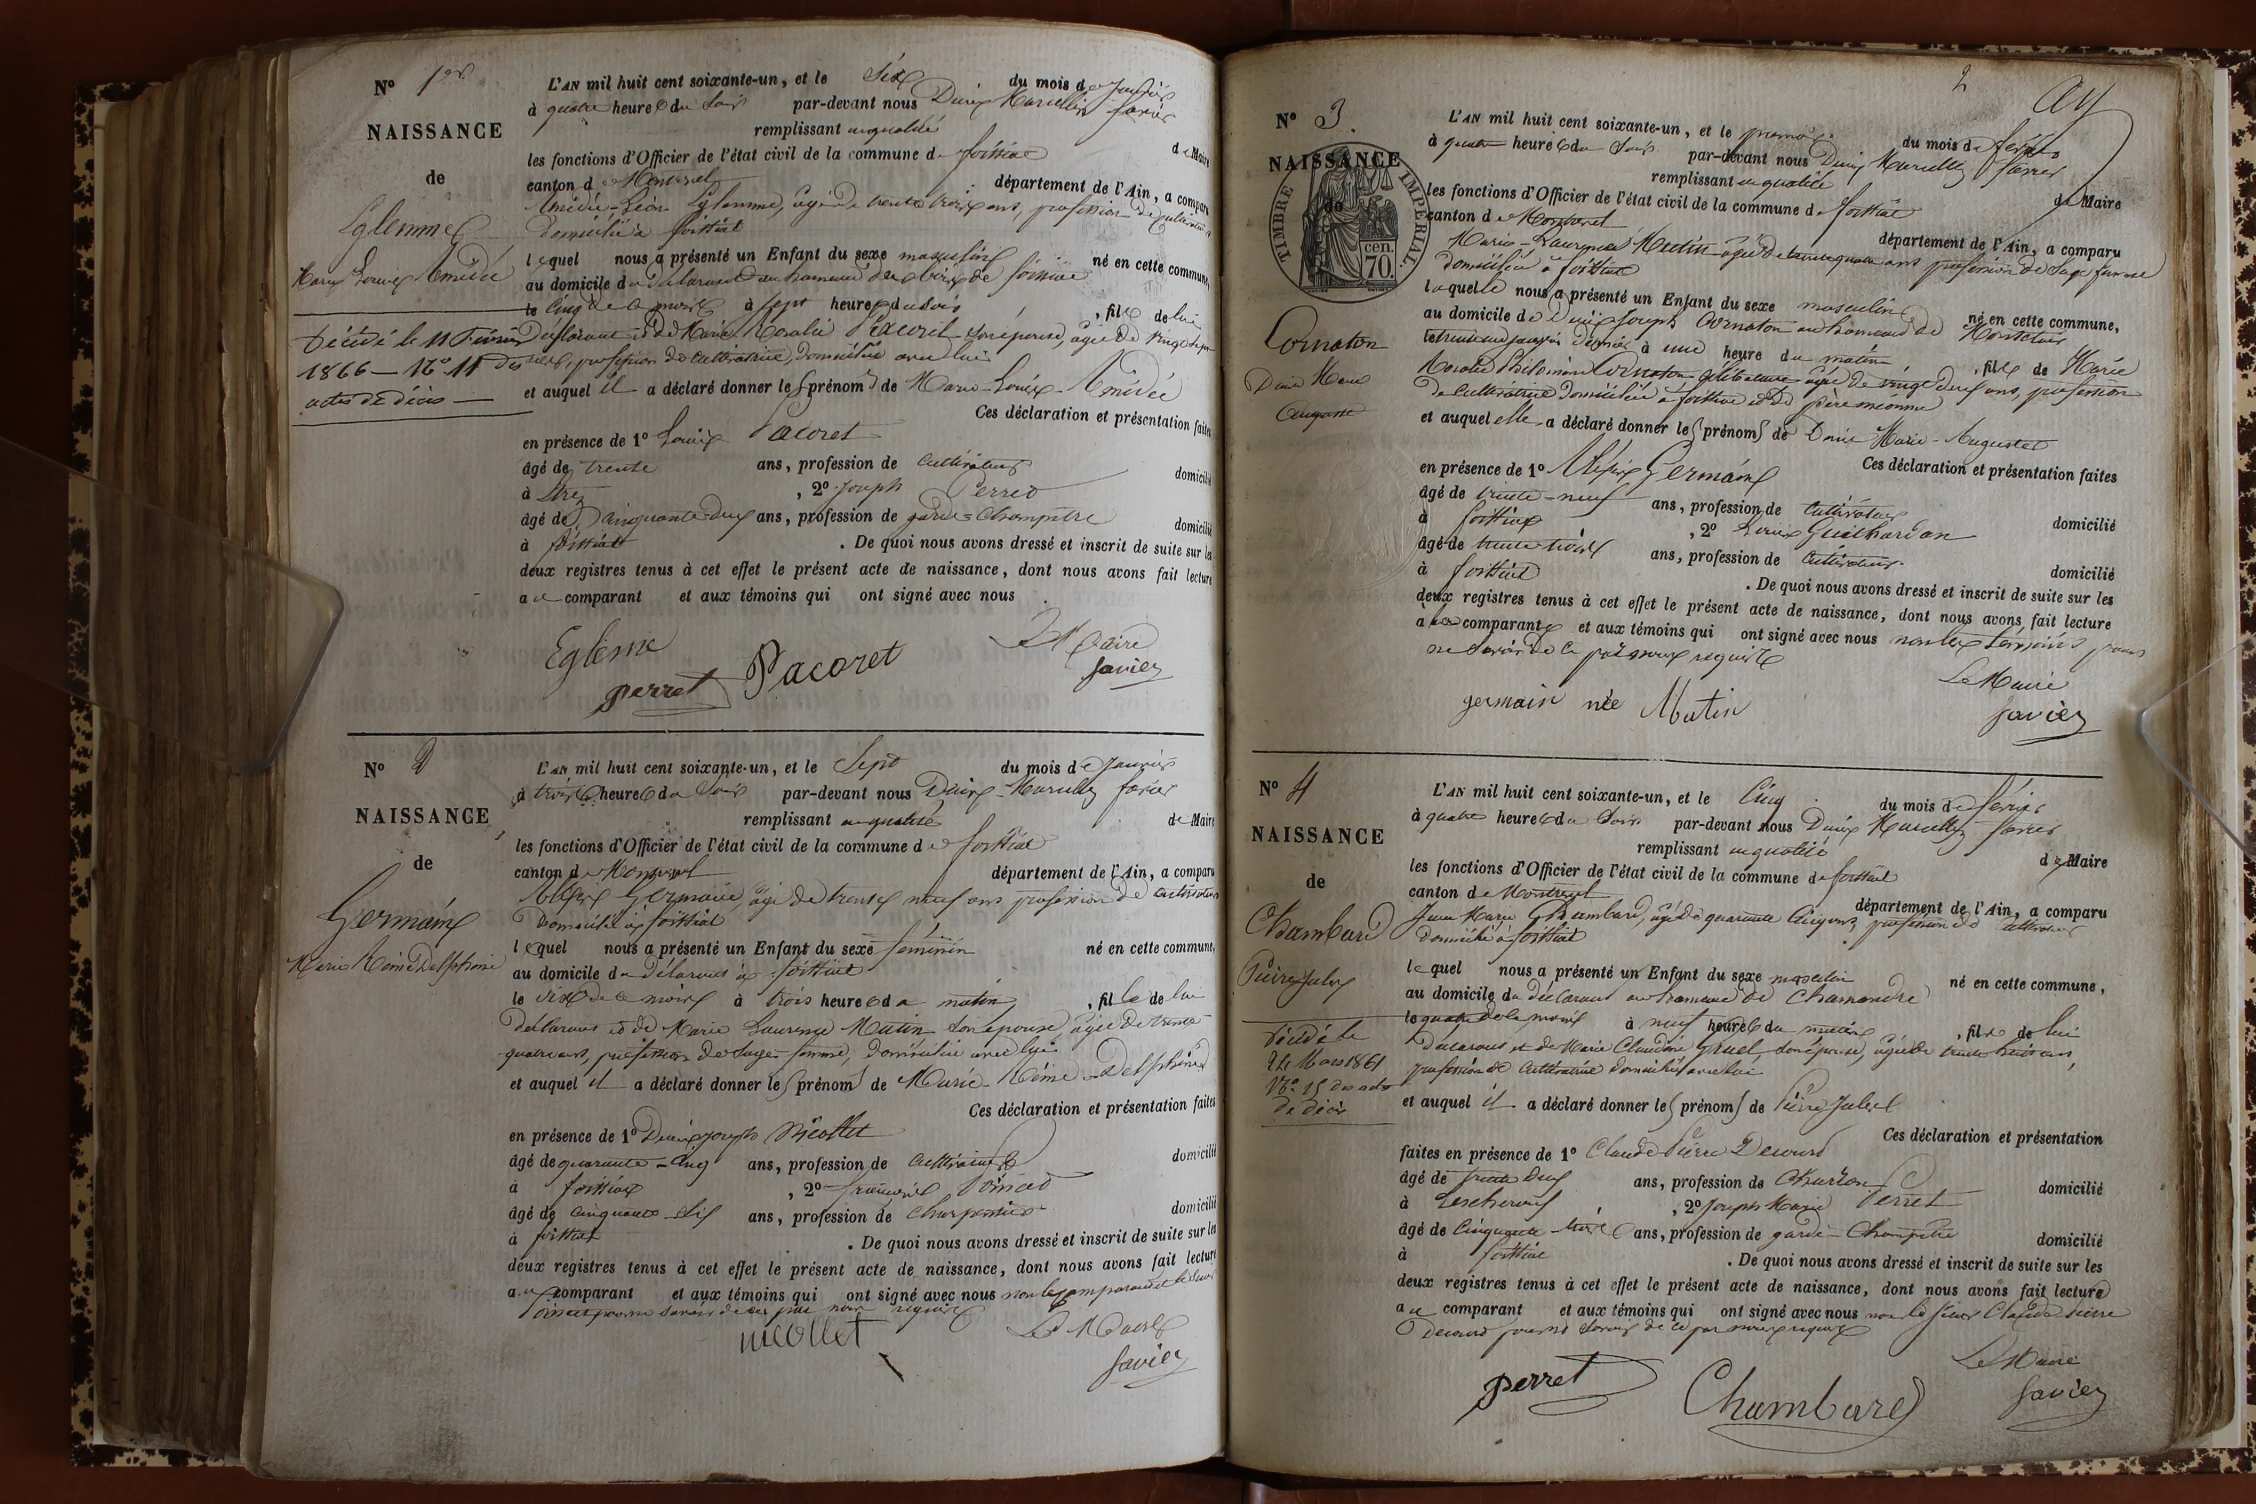 N° 1er
NAISSANCE
de
Eglemme
Marie Louis Amédée
Décédé le 11 Février
1866 — N° 11 des
actes de décès —
L'AN mil huit cent soixante-un, et le Six du mois de Janvier
à quatre heures du Soir par-devant nous Marcellin favier
remplissant en qualité de Maire
les fonctions d'Officier de l'état civil de la commune de
canton de département de l'Ain, a comparu
Amédée-Léon Eglemme, âgé de trente trois ans, profession de cultivateur
domicilié à
lequel nous a présenté un Enfant du sexe masculin né en cette commune,
au domicile du déclarant au hameau de
le Cinq de ce mois à Sept heures du soir, fils de lui
déclarant et de Marie Rosalie Pacoret son épouse, âgée de vingt
profession de cultivatrice, domiciliée avec lui
et auquel il a déclaré donner les prénoms de Marie-Louis-Amédée
Ces déclaration et présentation faites
en présence de 1° Louis Pacoret
âgé de trente ans, profession de cultivateur domicilié
à , 2° Joseph Perret
âgé de Cinquante deux ans, profession de garde-Champêtre domicilié
à . De quoi nous avons dressé et inscrit de suite sur les
deux registres tenus à cet effet le présent acte de naissance, dont nous avons fait lecture
au comparant et aux témoins qui ont signé avec nous
Egleme
perret Pacoret
Le Maire
favier
N° 2
NAISSANCE
de
Germain
Marie Noémie Delphine
L'AN mil huit cent soixante-un, et le Sept du mois de Janvier
à trois heures du Soir par-devant nous favier
remplissant en qualité de Maire
les fonctions d'Officier de l'état civil de la commune de
canton de département de l'Ain, a comparu
Alexis Germain, âgé de trente neuf ans profession de cultivateur
domicilié à
lequel nous a présenté un Enfant du sexe féminin né en cette commune,
au domicile du déclarant à
le Six de ce mois à trois heures du matin, fille de lui
déclarant et de Marie Laurence Mutin son épouse, âgée de trente
quatre ans, profession de Sage-femme, domiciliée avec lui
et auquel il a déclaré donner les prénoms de Marie-Noémie-Delphine
Ces déclaration et présentation faites
en présence de 1° Joseph Nicollet
âgé de quarante-Cinq ans, profession de cultivateur domicilié
à , 2°
âgé de Cinquante-Six ans, profession de Charpentier domicilié
à . De quoi nous avons dressé et inscrit de suite sur les
deux registres tenus à cet effet le présent acte de naissance, dont nous avons fait lecture
au comparant et aux témoins qui ont signé avec nous non le comparant
pour ne savoir de ce par nous requis
nicollet
Le Maire
favier
2
N° 3.
NAISSANCE
de
TIMBRE IMPÉRIAL.
70. cen.
Cornaton
Marie
Auguste
L'AN mil huit cent soixante-un, et le premier du mois de février
à quatre heures du Soir par-devant nous favier
remplissant en qualité de Maire
les fonctions d'Officier de l'état civil de la commune de
canton de département de l'Ain, a comparu
Marie-Laurence Mutin âgée de trente quatre ans profession de Sage femme
domiciliée à
laquelle nous a présenté un Enfant du sexe masculin né en cette commune,
au domicile de Joseph Cornaton au hameau de
le trente un janvier dernier à une heure du matin, fils de Marie
Rosalie Philomène Cornaton célibataire âgée de vingt deux ans, profession
de cultivatrice domiciliée à et de père inconnu
et auquel elle a déclaré donner les prénoms de Marie-Auguste
Ces déclaration et présentation faites
en présence de 1° Alexis Germain
âgé de trente-neuf ans, profession de cultivateur domicilié
à , 2° Louis
âgé de trente trois ans, profession de cultivateur domicilié
à . De quoi nous avons dressé et inscrit de suite sur les
deux registres tenus à cet effet le présent acte de naissance, dont nous avons fait lecture
à la comparante et aux témoins qui ont signé avec nous
ne savoir de ce par nous requis
germain née Mutin
Le Maire
favier
N° 4
NAISSANCE
de
Chambard
Pierre Jules
Décédé le
24 Mars 1861
N° 15 des actes
de décès
L'AN mil huit cent soixante-un, et le Cinq du mois de février
à quatre heures du Soir par-devant nous favier
remplissant en qualité de Maire
les fonctions d'Officier de l'état civil de la commune de
canton de département de l'Ain, a comparu
Jean Marie Chambard, âgé de quarante Cinq ans, profession de cultivateur
domicilié à
lequel nous a présenté un Enfant du sexe masculin né en cette commune,
au domicile du déclarant au hameau de Chamandre
le quatre de ce mois à neuf heures du matin, fils de lui
déclarant et de Marie Claudine Gruel, son épouse, âgée de trente huit ans,
profession de cultivatrice domiciliée avec lui
et auquel il a déclaré donner les prénoms de Pierre Jules
Ces déclaration et présentation
faites en présence de 1° Claude Pierre
âgé de trente deux ans, profession de Charron domicilié
à , 2° Joseph Marie Perret
âgé de Cinquante-trois ans, profession de garde-Champêtre domicilié
à . De quoi nous avons dressé et inscrit de suite sur les
deux registres tenus à cet effet le présent acte de naissance, dont nous avons fait lecture
au comparant et aux témoins qui ont signé avec nous non le sieur Claude Pierre
pour ne savoir de ce par nous requis
perret
Chambard
Le Maire
favier